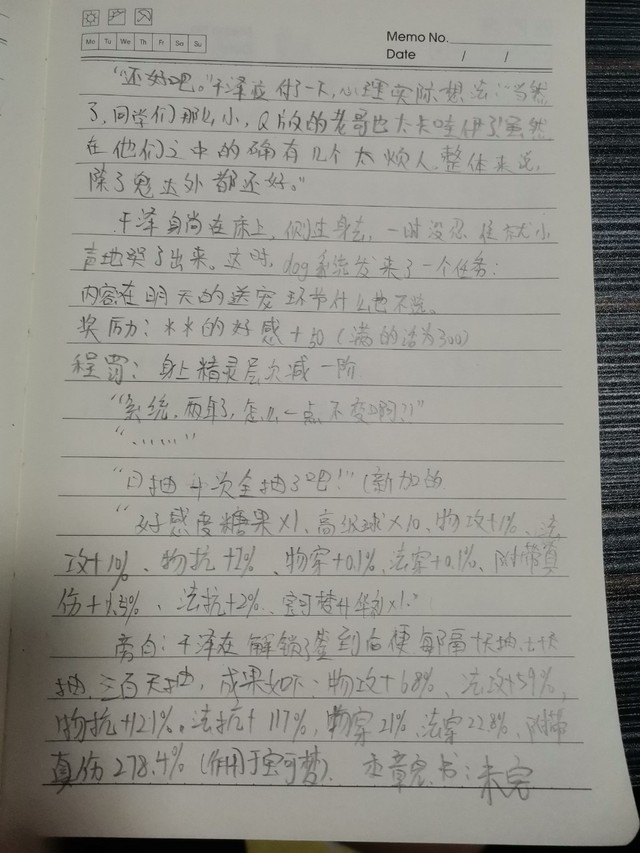 Memo No.
Mo Tu We Th Fr Sa Su
Date / /
"还好吧。"干泽应付了一下,心理实际想法:"当然
了,同学们那么小,Q版的老哥也太卡哇伊了!虽然
在他们之中的确有几个太烦人。整体来说,
除了 外都还好。"
干泽自 在床上,侧过身去,一时没忍住就小
声地哭了出来。这时,dog系统发来了一个任务:
内容在明天的送宠环节什么也不选。
奖励:水水的好感+50(满的话为300)
程罚:身上精灵层次减一阶
"系统,两年了,怎么一点不变啊?!"
"......"
"日抽 次全抽了吧!"(新加的
"好感度糖果×1、高级球×10、物攻+1%、法
攻+1%、物抗+2%、物穿+0.1%、法穿+0.1%、附带真
伤+1.5%、法抗+2%、宝可梦升华 ×1."
旁白:干泽在解锁了签到后便每隔十天抽,七十天
抽,三百天抽,成果如下:物攻+68%、法攻+59%,
物抗+121%。法抗+117%,物穿21%法穿22.8%、附带
真伤278.4%(作用于宝可梦). 本章完.书:未完